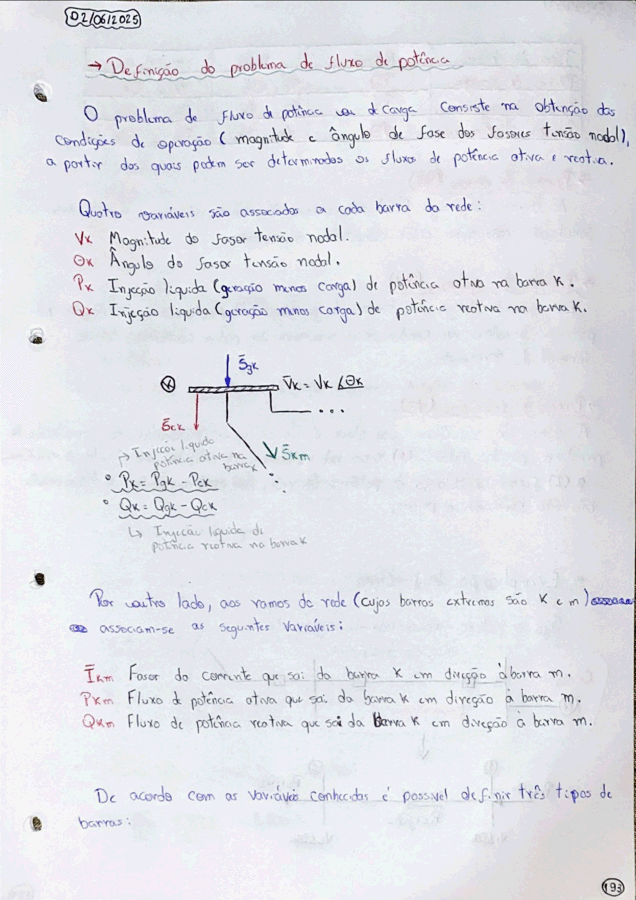 02/06/2025
→ Definição do problema de fluxo de potência
O problema de fluxo de potência ou de carga consiste na obtenção das
condições de operação (magnitude e ângulo de fase dos fasores tensão nodal),
a partir dos quais podem ser determinados os fluxos de potência ativa e reativa.
Quatro variáveis são associadas a cada barra da rede:
Vk Magnitude do fasor tensão nodal.
Θk Ângulo do fasor tensão nodal.
Pk Injeção líquida (geração menos carga) de potência ativa na barra k.
Qk Injeção líquida (geração menos carga) de potência reativa na barra k.
S̄gk
K V̄k = Vk ∠Θk
S̄ck
...
S̄km
↳ Injeção líquida
potência ativa na
barra k
• Pk = Pgk - Pck
• Qk = Qgk - Qck
↳ Injeção líquida de
potência reativa na barra k
Por outro lado, aos ramos da rede (cujos barras extremos são k e m)
associam-se as seguintes variáveis:
Īkm Fasor da corrente que sai da barra k em direção à barra m.
Pkm Fluxo de potência ativa que sai da barra k em direção à barra m.
Qkm Fluxo de potência reativa que sai da barra k em direção à barra m.
De acordo com as variáveis conhecidas é possível definir três tipos de
barras:
193